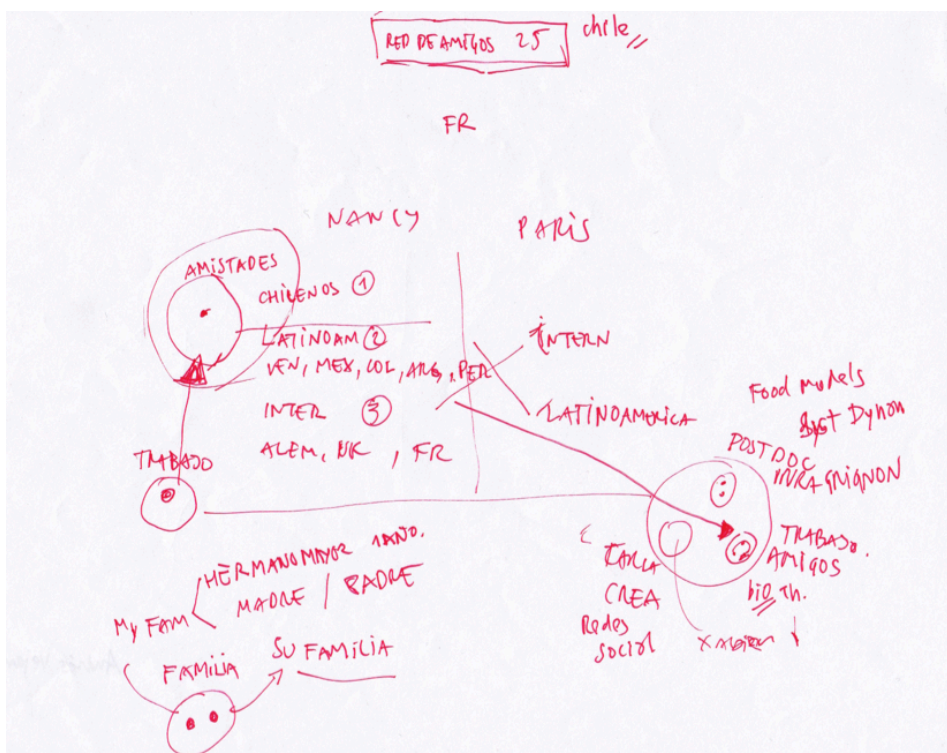 RED DE AMIGOS 25
chile
FR
NANCY
PARIS
AMISTADES
CHILENOS ①
LATINOAM ②
VEN, MEX, COL, ARG, PER
INTER ③
ALEM, UK, FR
INTERN
LATINOAMERICA
Food models
Syst Dynam
POSTDOC
INRA GRIGNON
TRABAJO
TRABAJO.
AMIGOS
bio Th.
CREA
Redes
social
HERMANO MAYOR 1 AÑO.
MADRE / PADRE
My FAM
FAMILIA
SU FAMILIA